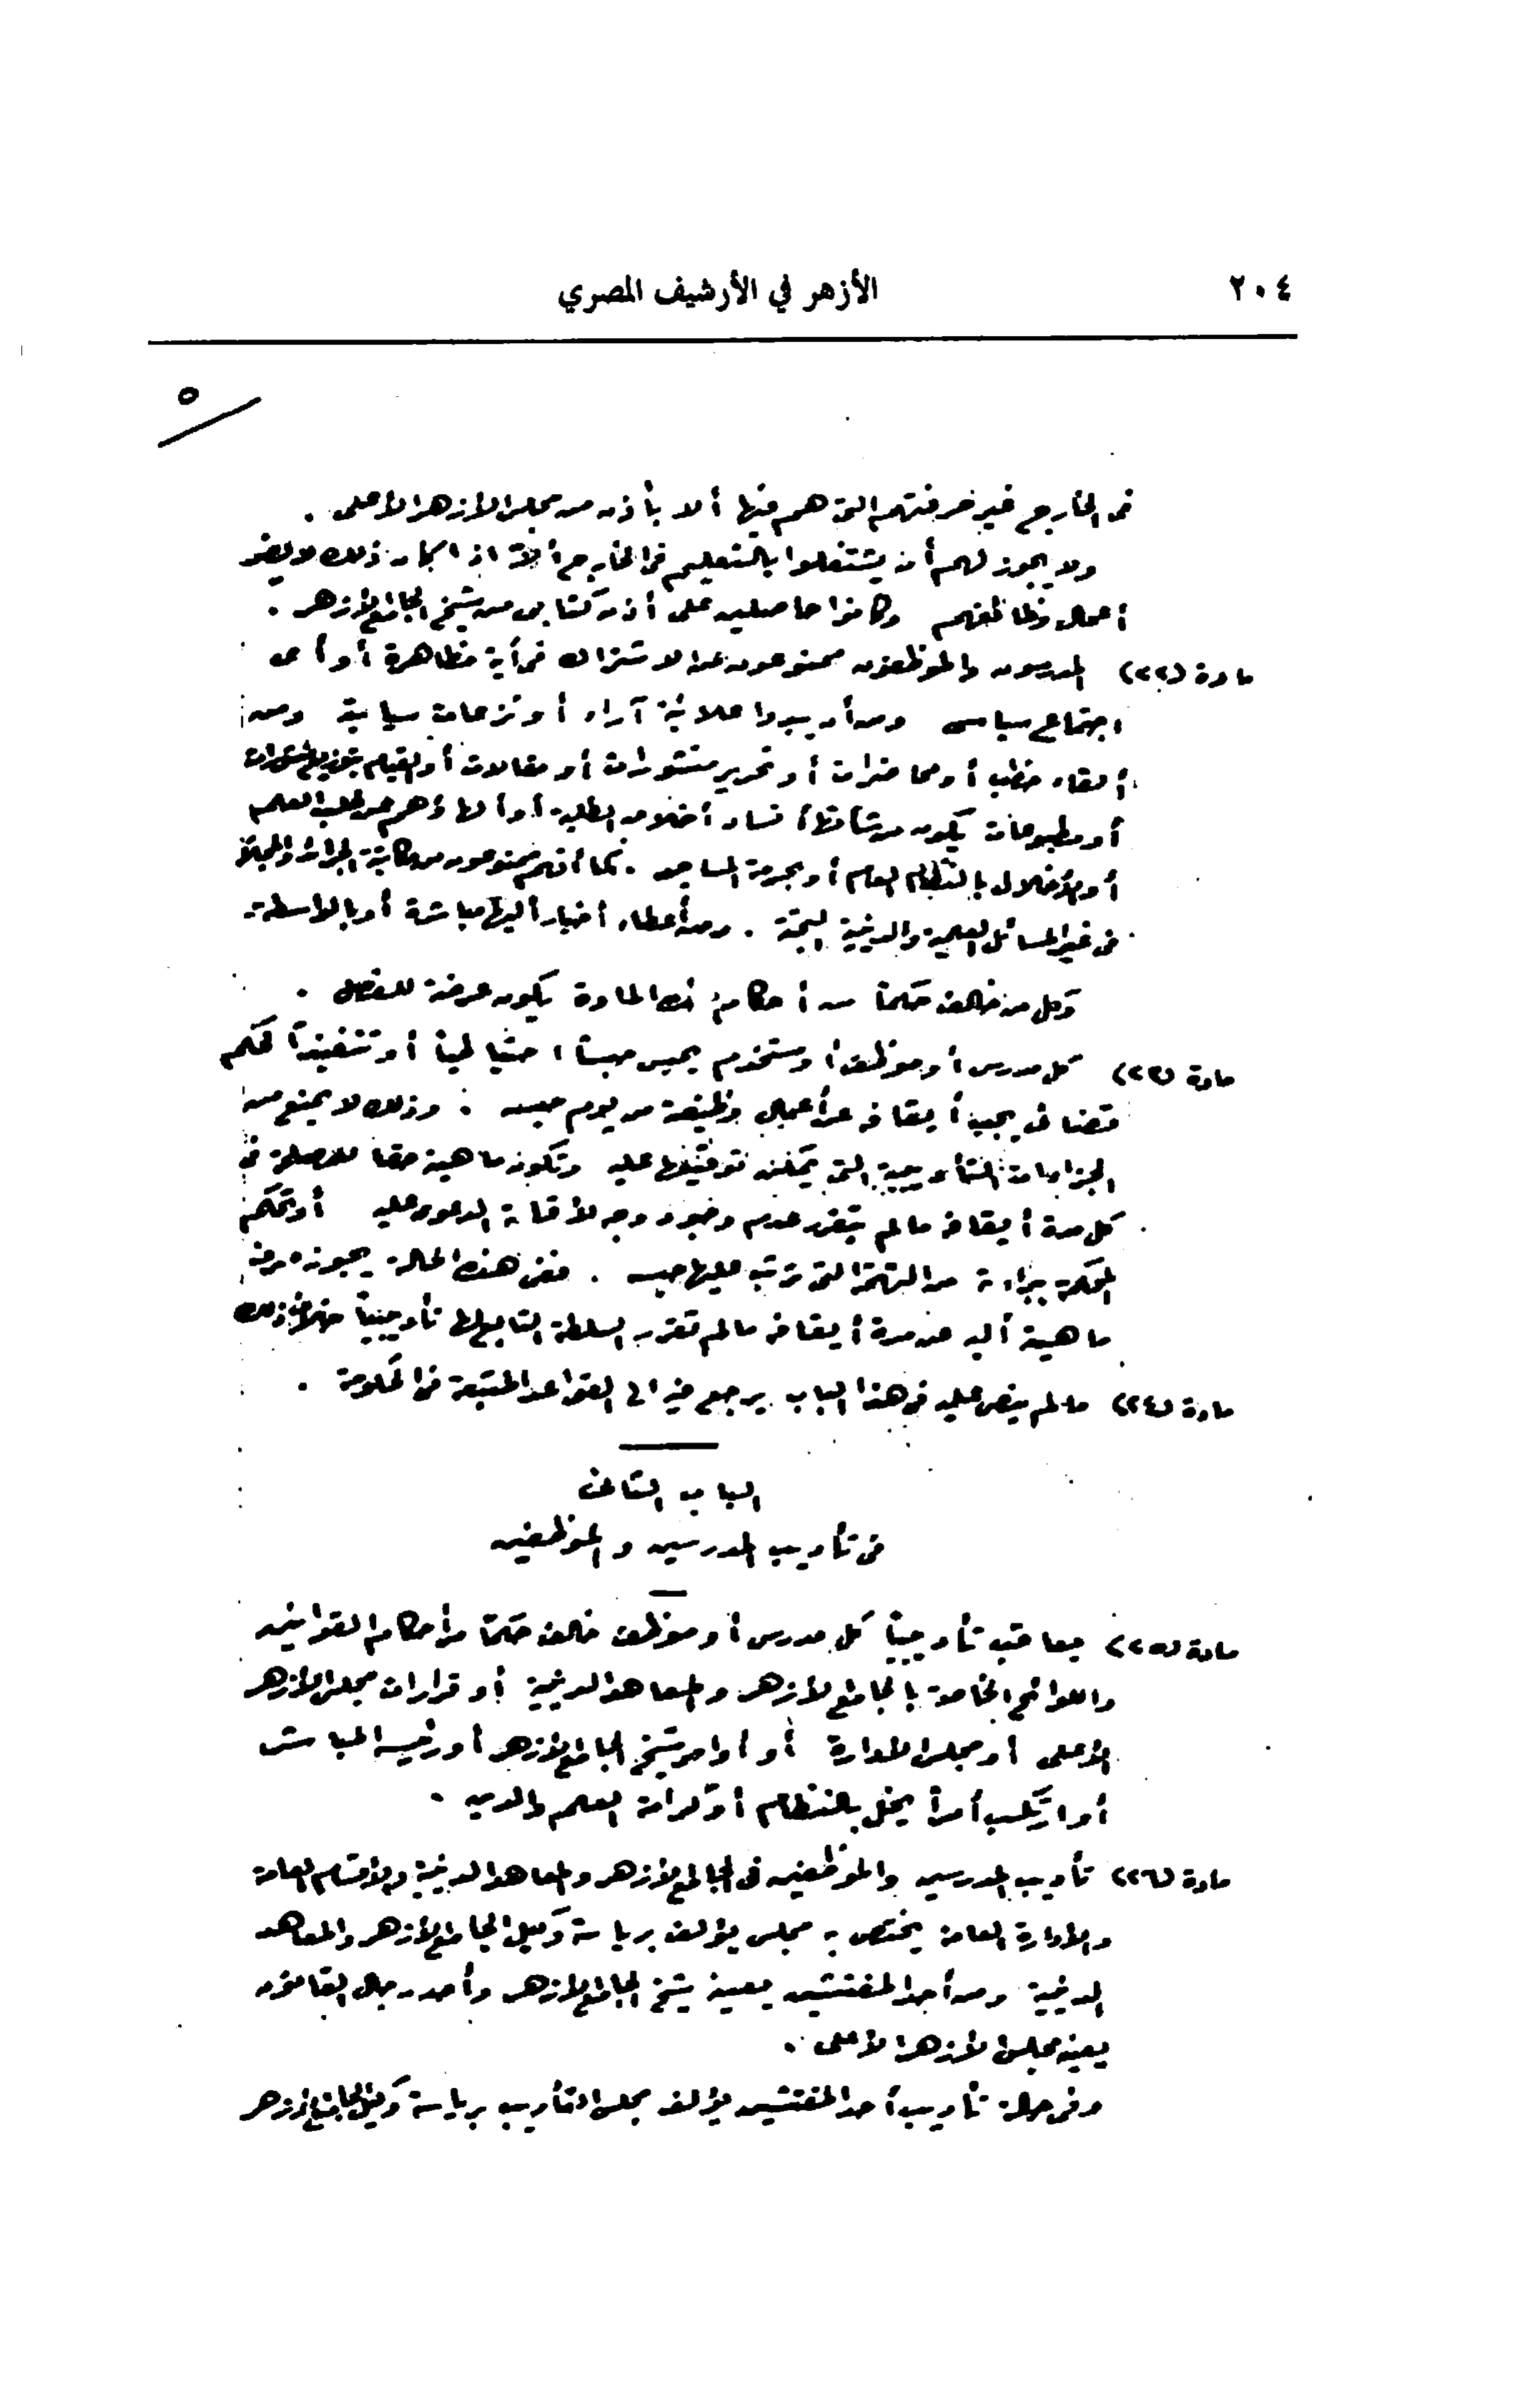 ٢٠٤
الأزهر في الأرشيف المصري
٥
فى الخارج غير حرفتهم التى هم فيها ألا بأذن من مجلس الأزهر الأعلى .
ولا يجوز لهم أن يشتغلوا بالتعليم فى الخارج ألا اذا كان ذلك لا يضر
أعمال وظائفهم وكانوا حاصلين على أذن كتابى من شيخ الجامع الأزهر .
مادة (٢٢) المدرسون والموظفون ممنوعون من الاشتراك فى أية مظاهرة أو أى
اجتماع سياسى ومن أن يبدوا علانية آراء أو نزعات سياسية ومن
ألقاء خطب أو محاضرات أو تحرير منشورات أو مقالات أو القيام بتوزيع منشورات
أو مطبوعات يكون من شأنها فساد أخلاق الطلبة أو ألهاؤهم عن طلب العلم
أو الأخلال بالنظام العام أو بحرمة المساجد . كما أنهم ممنوعون من مكاتبة الجرائد والمجلات
فى غير المسائل العلمية والدينية البحتة . ومن أعطاء أخبار أليها مباشرة أو بالواسطة .
وكل من خالف حكما من أحكام هذه المادة يكون عرضة للفصل .
مادة (٢٣) كل مدرس أو موظف أو مستخدم يحبس حبسا احتياطيا أو تنفيذا لحكم
قضائى يجب أيقافه عن أعمال وظيفته من يوم حبسه . وذلك لا يمنع من
الجزاءات التأديبية التى يمكن توقيعها عليه وتكون ماهيته حقا للمصلحة فى
كل مدة أيقافه ما لم يتقرر عدم وجود وجه لأقامة الدعوى عليه أو تحكم
المحكمة ببراءته من التهمة التى ترتب عليها حبسه . ففى هذه الحالة يجوز صرف
ماهيته أليه عن مدة أيقافه ما لم تقرر السلطة التابع لها تأديبيا خلاف ذلك
مادة (٢٤) ما لم ينص عليه فى هذا الباب يرجع فيه الى القواعد المتبعة فى الحكومة .
الباب الثامن
فى تأديب المدرسين والموظفين
مادة (٢٥) يعاقب تأديبيا كل مدرس أو موظف خالف حكما من أحكام القوانين
واللوائح الخاصة بالجامع الأزهر والمعاهد الدينية أو قرارات مجلس الأزهر
الأعلى أو مجلس الادارة أو أوامر شيخ الجامع الأزهر أو رئيسه المباشر
أو ارتكب أمرا يخل بالنظام أو كرامة العلم والدين .
مادة (٢٦) تأديب المدرسين والموظفين فى الجامع الأزهر والمعاهد الدينية والأقسام العامة
والادارة العامة يختص به مجلس يؤلف برياسة وكيل الجامع الأزهر والمعاهد
الدينية ومن أحد المفتشين يعينه شيخ الجامع الأزهر وأحد رجال القانون
يعينه مجلس الأزهر الأعلى .
وفى حالة تأديب أحد المفتشين يؤلف مجلس التأديب برياسة وكيل الجامع الأزهر